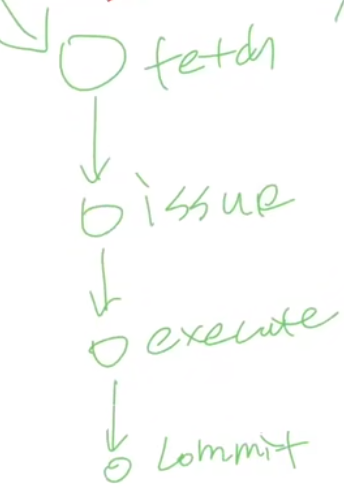 fetch
issue
execute
commit